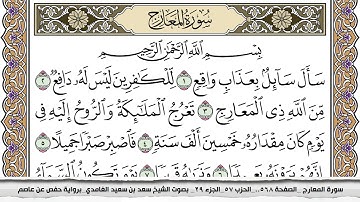 سُورَةُ المَعَارِجِ
بِسْمِ اللَّهِ الرَّحْمَٰنِ الرَّحِيمِ
سَأَلَ سَائِلٌۢ بِعَذَابٍ وَاقِعٍ ١ لِّلْكَٰفِرِينَ لَيْسَ لَهُۥ دَافِعٌ ٢
مِّنَ ٱللَّهِ ذِى ٱلْمَعَارِجِ ٣ تَعْرُجُ ٱلْمَلَٰٓئِكَةُ وَٱلرُّوحُ إِلَيْهِ فِى
يَوْمٍ كَانَ مِقْدَارُهُۥ خَمْسِينَ أَلْفَ سَنَةٍ ٤ فَٱصْبِرْ صَبْرًا جَمِيلًا ٥
إِنَّهُمْ يَرَوْنَهُۥ بَعِيدًا ٦ وَنَرَىٰهُ قَرِيبًا ٧
سورة المعارج _الصفحة ٥٦٨_ الحزب ٥٧_الجزء ٢٩_ بصوت الشيخ سعد بن سعيد الغامدي_برواية حفص عن عاصم